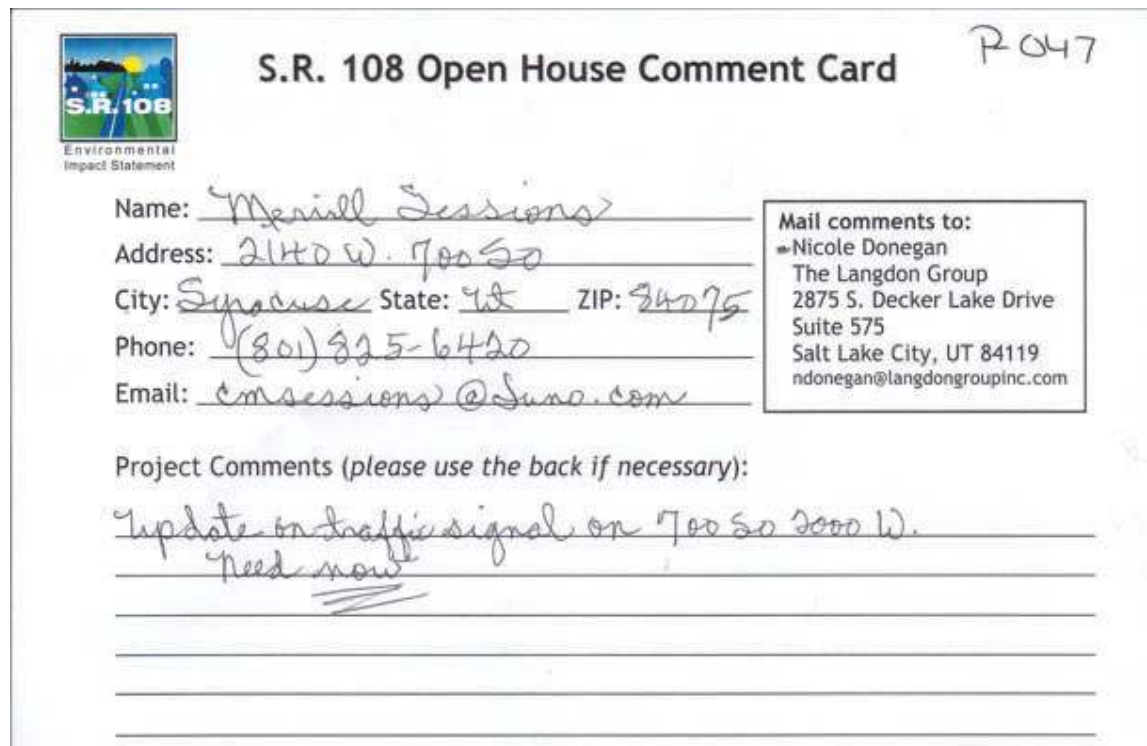 P 047
S.R. 108 Open House Comment Card
S.R.108
Environmental
Impact Statement
Name: Merrill Sessions
Address: 2140 W. 700 So
City: Syracuse State: Ut ZIP: 84075
Phone: (801) 825-6420
Email: cmsessions@Juno.com
Mail comments to:
Nicole Donegan
The Langdon Group
2875 S. Decker Lake Drive
Suite 575
Salt Lake City, UT 84119
ndonegan@langdongroupinc.com
Project Comments (please use the back if necessary):
Update on traffic signal on 700 So 2000 W.
need now